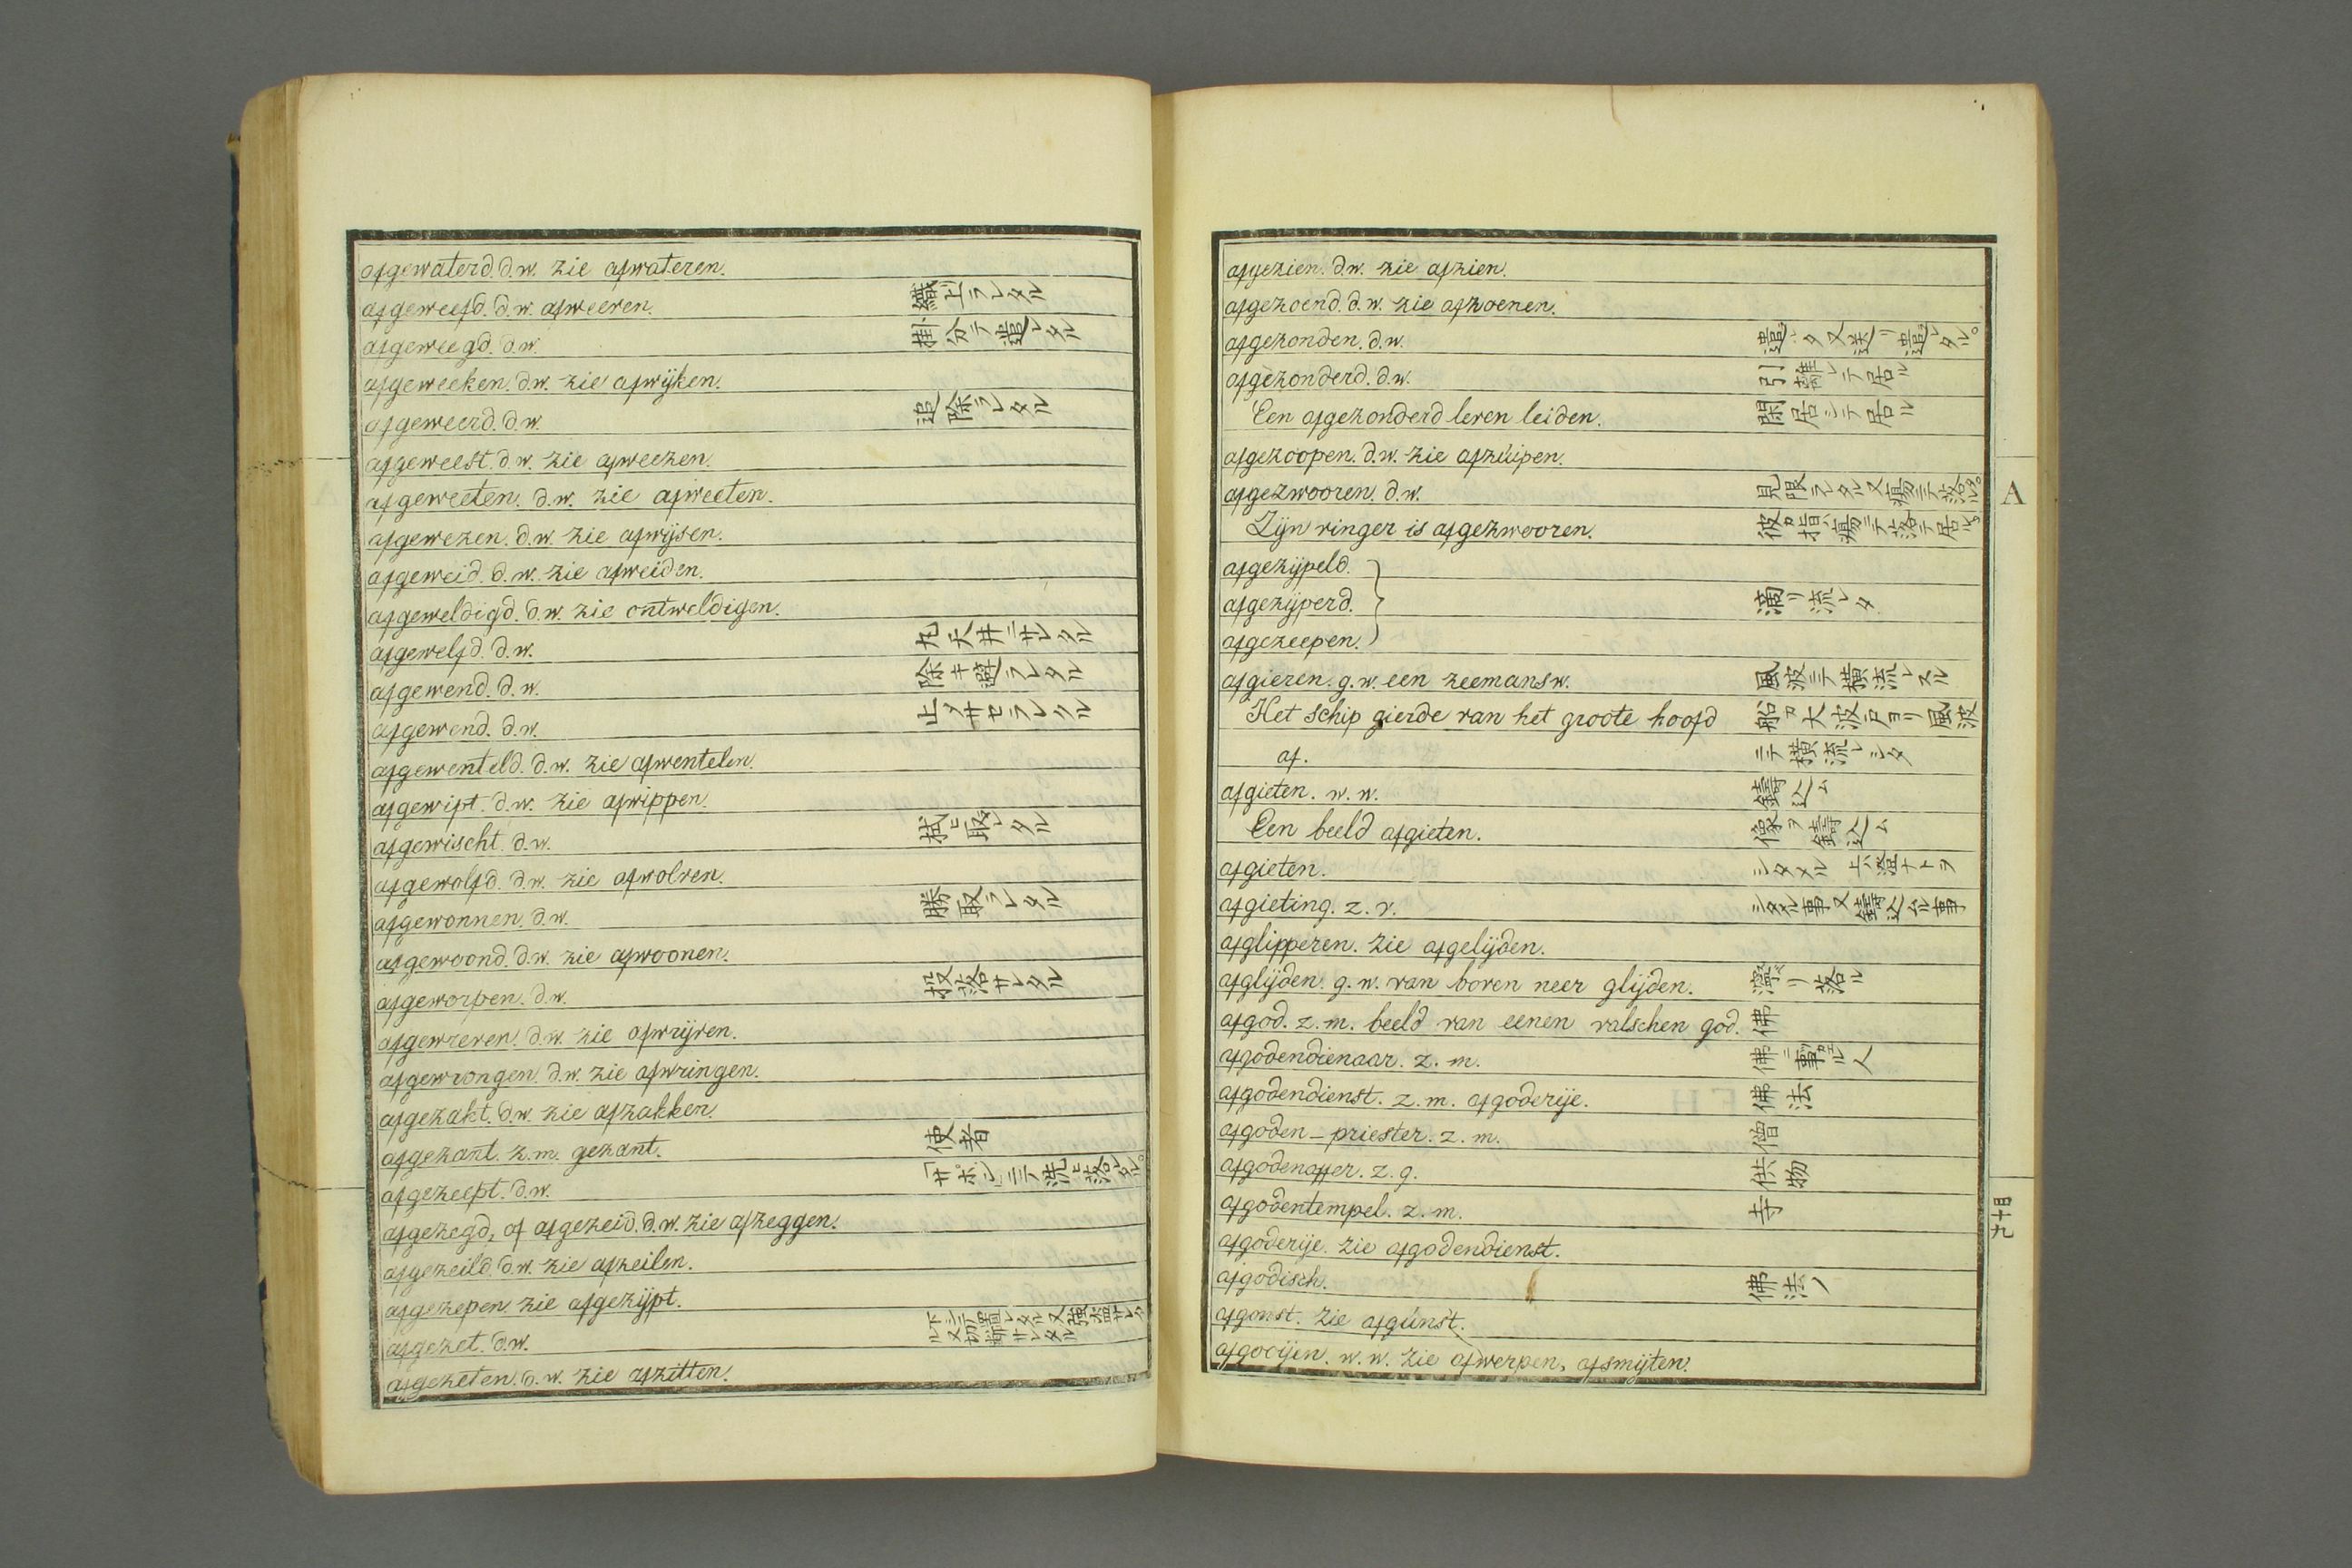 afgewaterd. d.w. zie afwateren.
afgeweefd. d.w. afweeven. 織上ラレタル
afgeweegd. d.w. 掛分テ遣レタル
afgeweeken. d.w. zie afwijken.
afgeweerd. d.w. 追除ラレタル
afgeweest. d.w. zie afweezen.
afgeweeten. d.w. zie afweeten.
afgewezen. d.w. zie afwijsen.
afgeweid. d.w. zie afweiden.
afgeweldigd. d.w. zie ontweldigen.
afgewelfd. d.w. 丸天井ニサレタル
afgewend. d.w. 除キ避ラレタル
afgewend. d.w. 止メサセラレタル
afgewenteld. d.w. zie afwentelen.
afgewipt. d.w. zie afwippen.
afgewischt. d.w. 拭ヒ取レタル
afgewolfd. d.w. zie afwolven.
afgewonnen. d.w. 勝取ラレタル
afgewoond. d.w. zie afwoonen.
afgeworpen. d.w. 投落サレタル
afgewreven. d.w. zie afwrijven.
afgewrongen. d.w. zie afwringen.
afgezakt. d.w. zie afzakken.
afgezant. z.m. gezant. 使者
afgezeept. d.w. 「サボン」ニテ洗ヒ落レタル。
afgezegd, of afgezeid. d.w. zie afzeggen.
afgezeild. d.w. zie afzeilen.
afgezepen. zie afgezijpt.
afgezet. d.w. 下シテ置レタル又強盗サレタ
ル又切断サレタル
afgezeten. d.w. zie afzitten.
afgezien. d.w. zie afzien.
afgezoend. d.w. zie afzoenen.
afgezonden. d.w. 遣レタ又送リ遣レタル。
afgezonderd. d.w. 引離レテ居ル
Een afgezonderd leven leiden. 閑居シテ居ル
afgezoopen. d.w. zie afzuipen.
afgezwooren. d.w. 見限ラレタル又瘍ニテ落ル。
Zijn vinger is afgezwooren. 彼ノ指ハ瘍ニテ落テ居ル
afgezijpeld.
afgezijperd. 滴リ流レタ
afgezeepen.
afgieren. g.w. een zeemansw. 風波ニテ横流レスル
Het schip gierde van het groote hoofd 船カ大波戸ヨリ風波
af. ニテ横流レシタ
afgieten. w.w. 鑄込ム
Een beeld afgieten. 像ヲ鑄込ム
afgieten. シタメル 上ハ澄ナトヲ
afgieting. z.v. シタメル事又鑄込ムル事
afglipperen. zie afgelijden.
afglijden. g.w. van boven neer glijden. 滑リ落ル
afgod. z.m. beeld van eenen valschen god. 佛
afgodendienaar. z.m. 佛ニ事ル人
afgodendienst. z.m. afgoderije. 佛法
afgoden-priester. z.m. 僧
afgodenoffer. z.g. 供物
afgodentempel. z.m. 寺
afgoderije. zie afgodendienst.
afgodisch. 佛法ノ
afgonst. zie afgunst.
afgooijen. w.w. zie afwerpen, afsmijten.
A
九十日